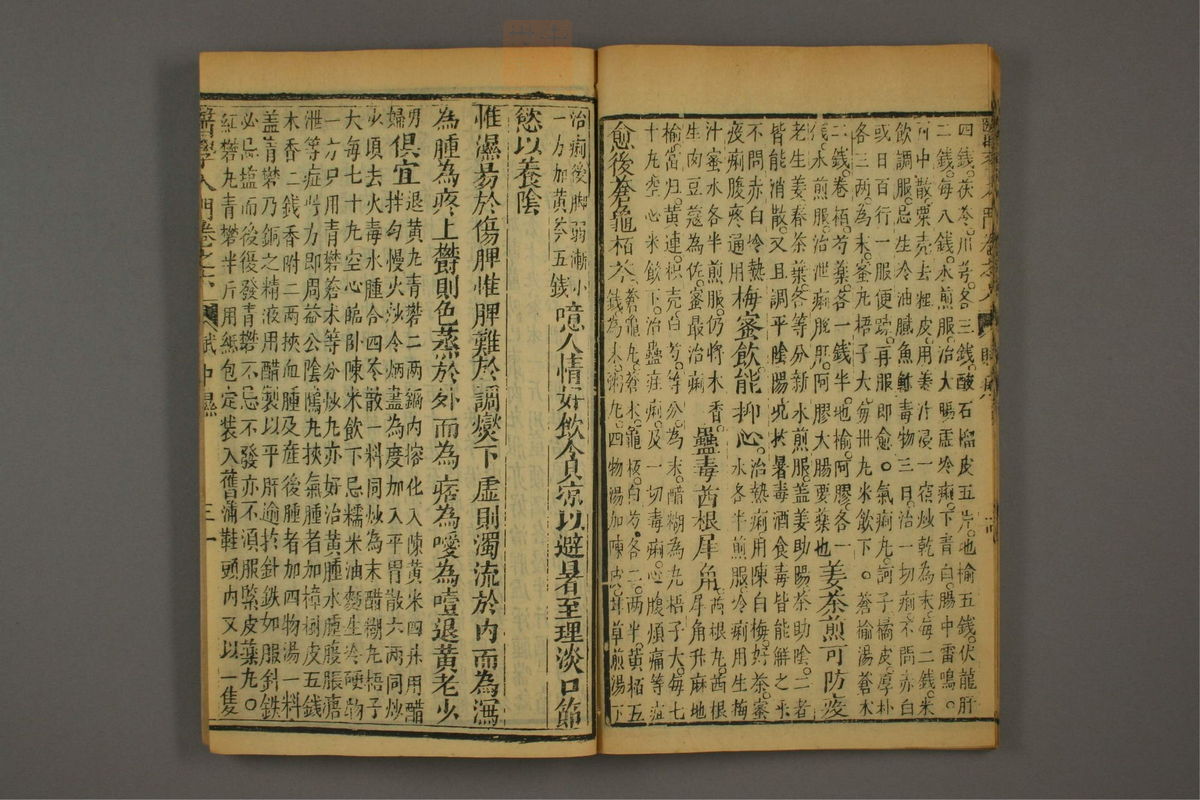 四錢。茯苓。川芎。各三錢。酸石榴皮五片。地榆五錢。伏龍肝
二錢。每八錢。水煎服。治大腸虛冷痢。下青白。腸中雷鳴。
中散。粟壳去粗皮。用姜汁浸一宿。炒乾為末。每二錢。米
飲調服。忌生冷油膩魚鮓毒物三日。治一切痢。不問赤白。
或日百行。一服便疎。再服即愈。氣痢丸。訶子橘皮。厚朴
各三兩。為末。蜜丸梧子大。每卅丸。米飲下。蒼榆湯蒼木
二錢。卷栢。芍藥。各一錢半。地榆。阿膠。各一
水煎服。治泄痢脫肛。阿膠大腸要藥也姜茶煎可防疫
老生姜。春茶葉。各等分。新水煎服。盖姜助陽。茶助陰。二者
皆能消散。又且調平陰陽。况於暑毒酒食毒。皆能解之乎。
不問赤白冷熱梅蜜飲能抑心治熱痢。用陳白梅。好茶。蜜
夜痢腹疼通用水各半煎服。冷痢。用生梅
汁蜜水各半煎服。仍將木香。蠱毒茜根犀角茜根丸。茜根
生肉豆蔻為佐。蜜最治痢犀角升麻地
榆。當归。黃連。枳壳。白芍。等分為末。醋糊為丸梧子大。每七
十丸。空心米飲下。治蠱疰痢。及一切毒痢。心腹煩痛等症
愈後蒼龜栢苓蒼龜丸。蒼术。龜板。白芍。各二兩半。黃栢五
錢為末。粥丸。四物湯加陳皮。甘草煎湯下
治痢後脚弱漸小噫人情好飲食凉以避暑至理淡口節
一方加黃芩五錢
慾以養陰
惟濕易於傷脾惟脾難於調燮下虛則濁流於內而為瀉
為腫為疼上鬱則色蒸於外而為痞為噯為噎退黃老少
男婦俱宜退黃丸青礬二兩鍋內熔化入陳黃米四升用醋
拌匀慢火炒令烟盡為度加入平胃散六兩同炒
少頃去火毒水腫合四苓散一料同炒為末醋糊丸梧子
大每七十丸空心臨卧陳米飲下忌糯米油麵生冷硬物
一方只用青礬蒼术等分炒丸亦好治黃腫水腫腹脹溏
泄等症此方即周益公陰隲丸挾氣腫者加樟樹皮五錢
木香二錢香附二兩挾血腫及産後腫者加四物湯一料
盖青礬乃銅之精液用醋製以平肝逾於針鉄如服斜鉄
必忌塩而後後發青礬不忌不發亦不湏服緊皮藥丸。
紅礬丸青礬半斤用紙包定装入舊蒲鞋頭内又以一隻
醫學入門卷之六 賦中濕 三一